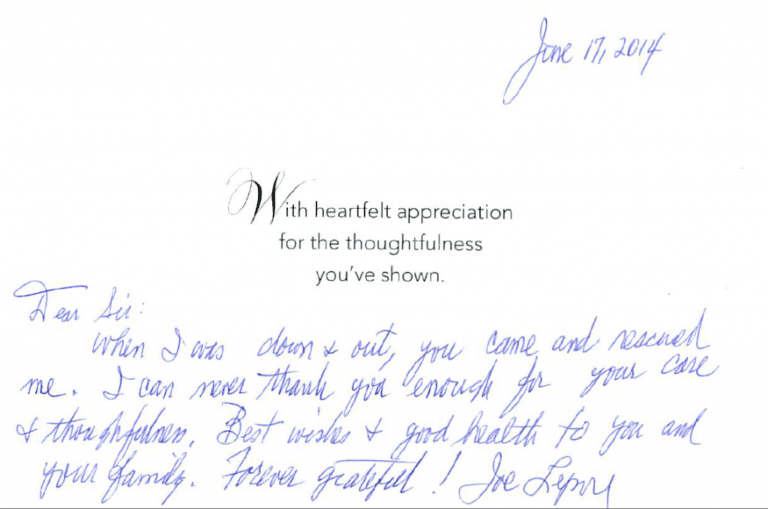 June 17, 2014
With heartfelt appreciation
for the thoughtfulness
you've shown.
Dear Sir:
When I was down & out, you came and rescued
me. I can never thank you enough for your care
& thoughfulness. Best wishes & good health to you and
your family. Forever grateful! Joe